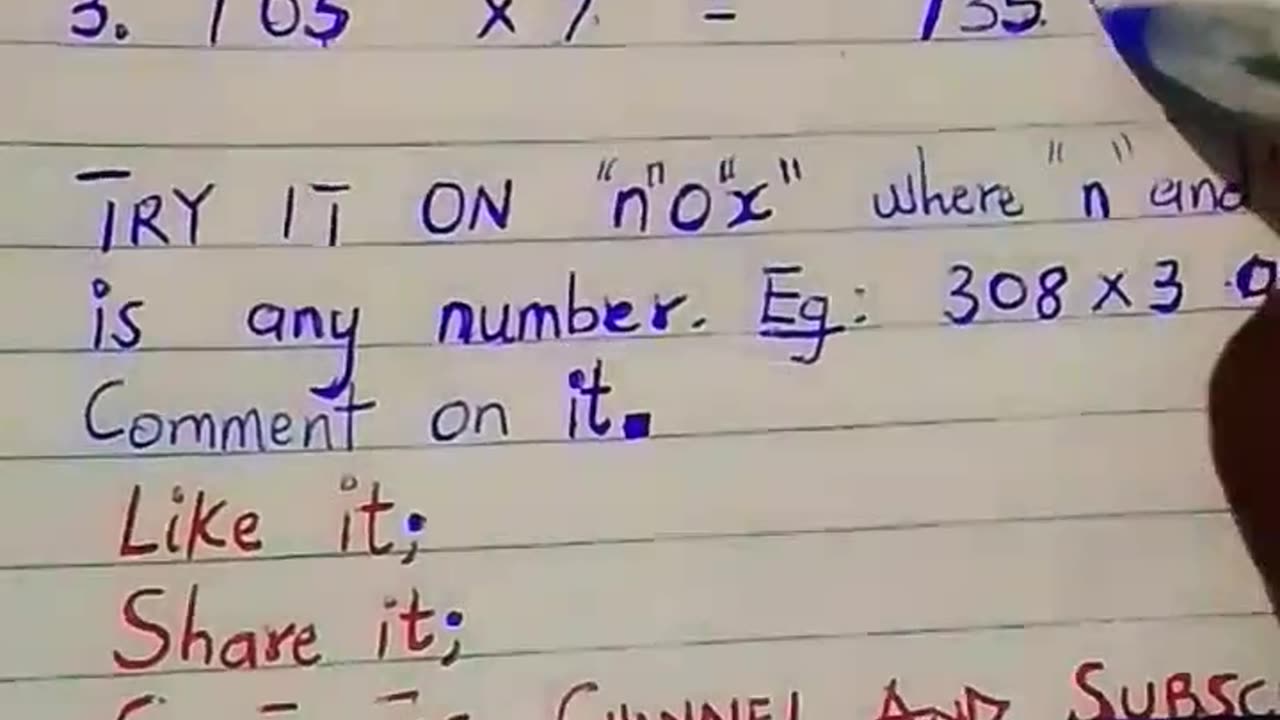 3. 105 × 7 = 735.
TRY IT ON "n"0"x" where "n" and
is any number. Eg: 308 × 3
Comment on it.
Like it;
Share it;
CHANNEL AND SUBSC